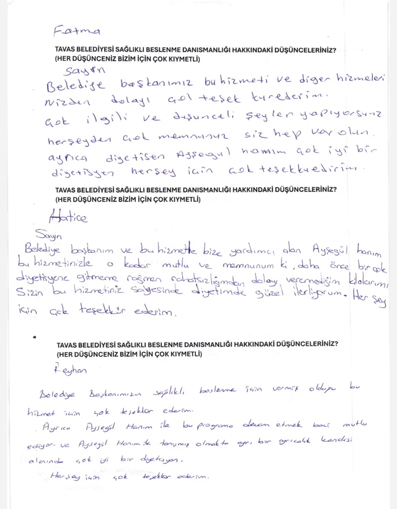 Fatma
TAVAS BELEDİYESİ SAĞLIKLI BESLENME DANISMANLIĞI HAKKINDAKİ DÜŞÜNCELERİNİZ?
(HER DÜŞÜNCENİZ BİZİM İÇİN ÇOK KIYMETLİ)
Sayın
Belediye başkanımız bu hizmeti ve diger hizmeleri
nizden dolayı çok teşek kürederim.
Çok ilgili ve düşünceli şeyler yapıyorsunuz
herşeyden çok memnunuz siz hep var olun.
ayrıca diyetisen Ayşegül hanım çok iyi bir
diyetisyen herşey için çok teşekkuedirim.
TAVAS BELEDİYESİ SAĞLIKLI BESLENME DANISMANLIĞI HAKKINDAKİ DÜŞÜNCELERİNİZ?
(HER DÜŞÜNCENİZ BİZİM İÇİN ÇOK KIYMETLİ)
Hatice
Sayın
Belediye başkanım ve bu hizmette bize yardımcı olan Ayşegül hanım
bu hizmetinizle o kadar mutlu ve memnunum ki, daha önce bir çok
diyetisyene gitmeme rağmen rahatsızlığımdan dolayı veremediğim kilolarımı
Sizin bu hizmetiniz sayesinde diyetimde güzel ilerliyorum. Her şey
için çok teşekkür ederim.
TAVAS BELEDİYESİ SAĞLIKLI BESLENME DANISMANLIĞI HAKKINDAKİ DÜŞÜNCELERİNİZ?
(HER DÜŞÜNCENİZ BİZİM İÇİN ÇOK KIYMETLİ)
Reyhan
Belediye Başkanımızın sağlıklı beslenme için vermiş olduğu bu
hizmet için çok teşekkür ederim.
Ayrıca Ayşegül Hanım ile bu programa devam etmek beni mutlu
ediyor ve Ayşegül Hanım'la tanışmış olmakta ayrı bir ayrıcalık kendisi
alanında çok iyi bir diyetisyen.
Herşey için çok teşekkür ederim.